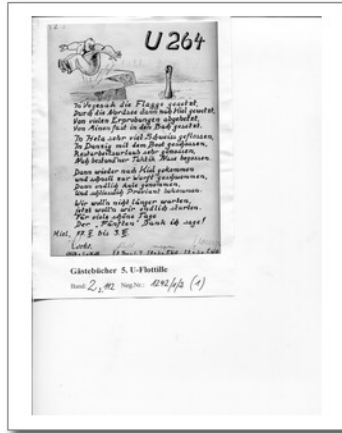 U 264
In Vegesack die Flagge gesetzt,
Durch die Nordsee dann nach Kiel gewetzt,
Von vielen Erprobungen abgehetzt,
Von Minen fast in den Bach gesetzt.
In Hela sehr viel Schweiss geflossen,
In Danzig mit dem Boot geschossen,
Resturlaub sehr genossen,
Nach bestand'ner Taktik Nase begossen.
Dann wieder nach Kiel gekommen
und schnell zur Werft geschwommen,
Dann endlich Aale genommen,
Und schliesslich Proviant bekommen.
Wir woll'n nicht länger warten,
jetzt woll'n wir endlich starten.
Für viele schöne Tage
Der „Fünften" Dank ich sage!
Kiel, 17. X. bis 3. XI.
Looks.
Gästebücher 5. U-Flottille
Band: 2, 112 Neg.Nr.: 1242/1/2 (1)